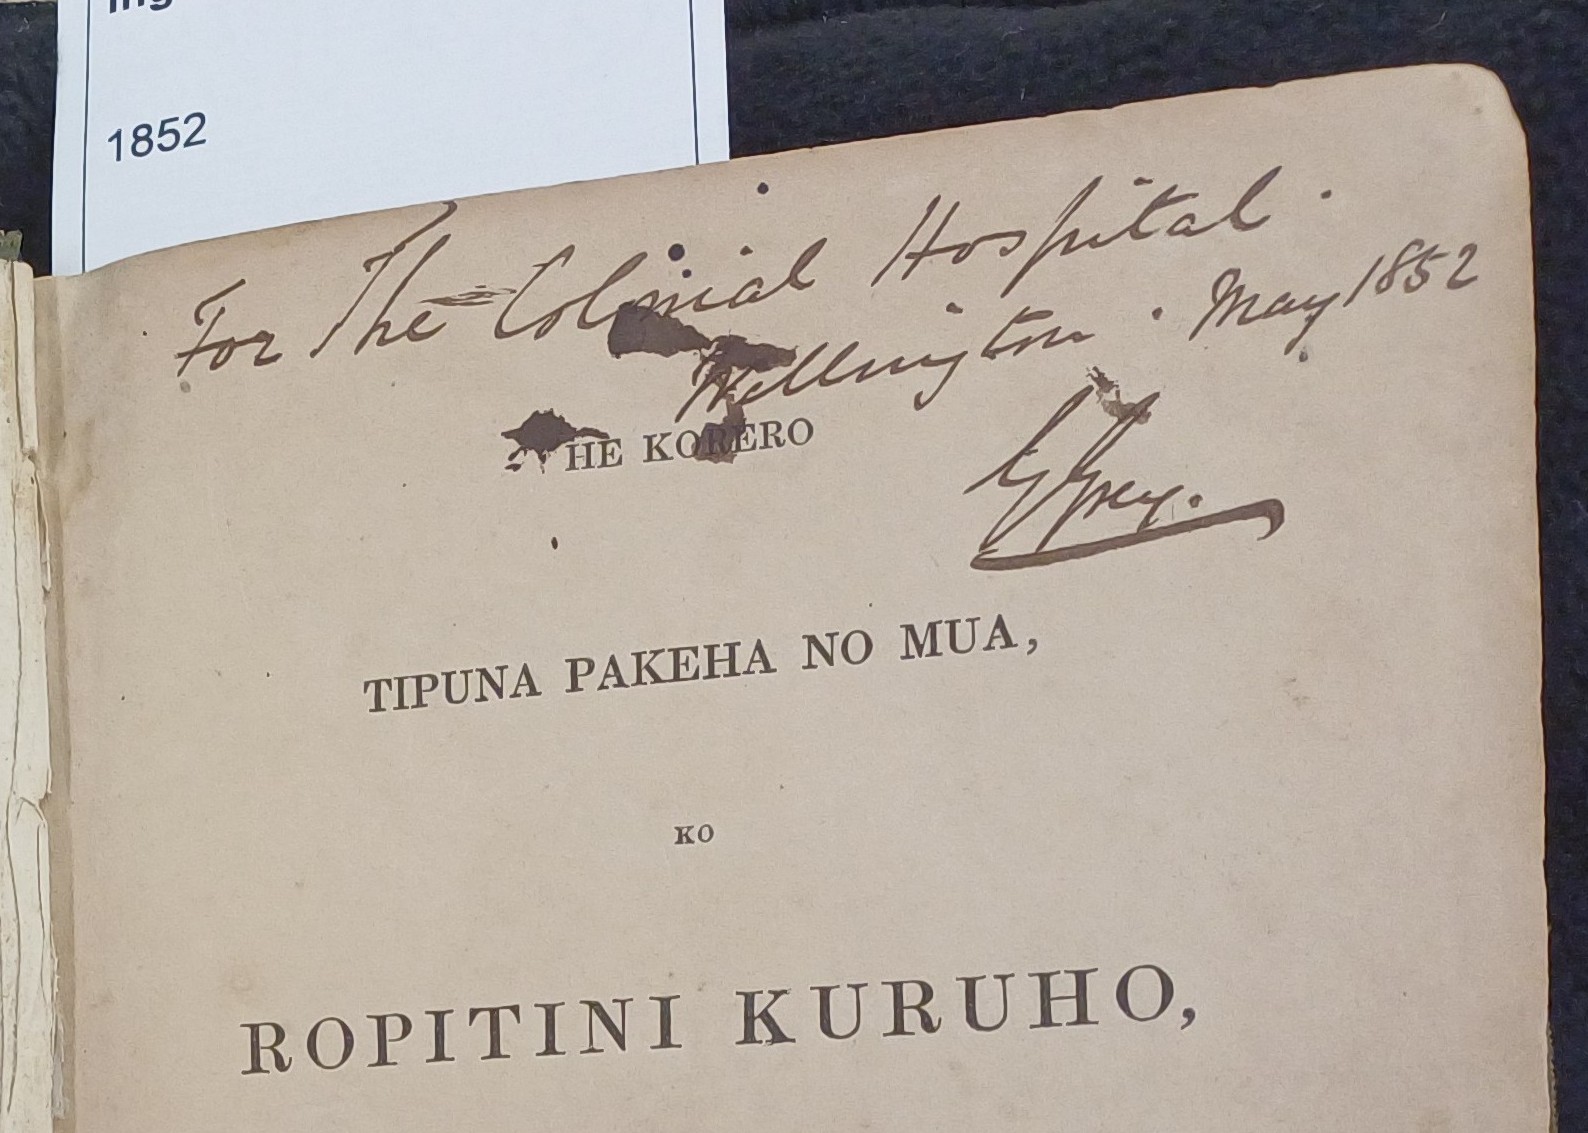 ing
1852
For The Colonial Hospital.
Wellington. May 1852
G Grey.
HE KORERO
TIPUNA PAKEHA NO MUA,
KO
ROPITINI KURUHO,